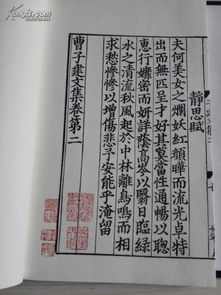 靜思賦
夫何美女之爛妖紅顏曄而流光卓特
出而無匹呈才好其莫當性通暢以聰
惠行孊密而妍詳蔭高岑以翳日臨綠
水之清流秋風起於中林離鳥鳴而相
求愁慘慘以增傷悲予安能乎淹留
曹子建文集卷第二